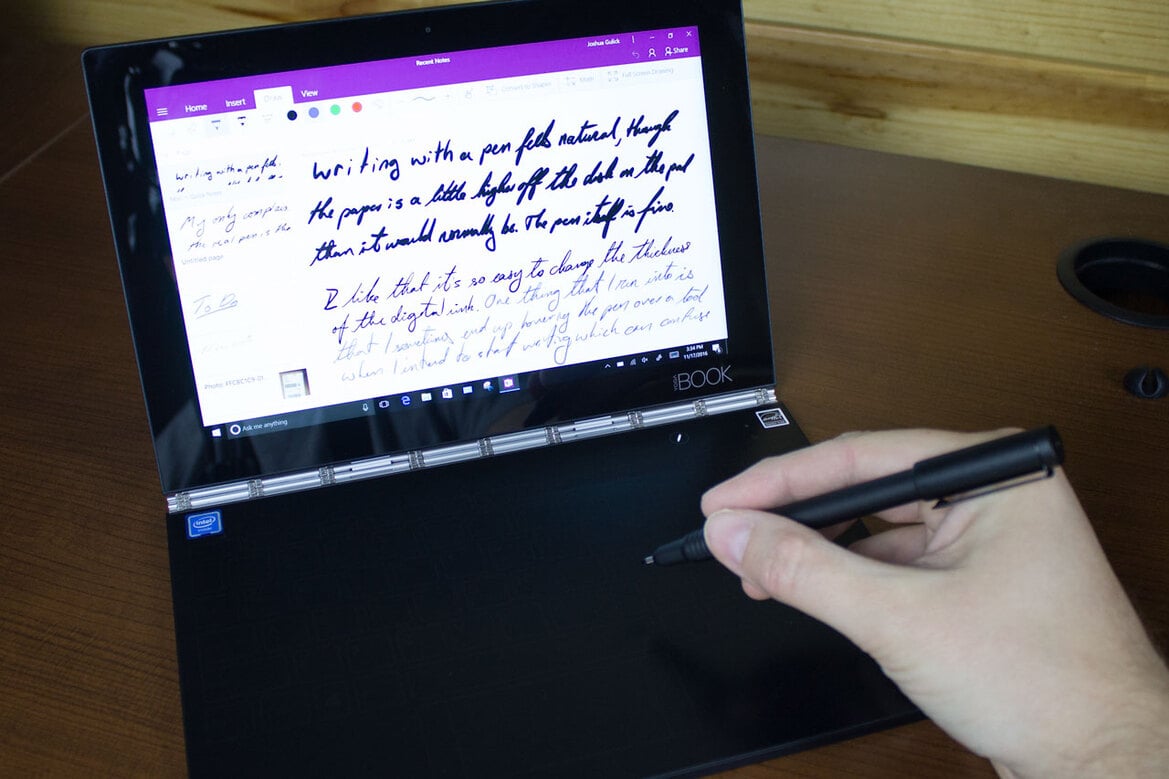 Joshua Gulick
Recent Notes
Share
Home Insert Draw View
Convert to Shapes Math Full Screen Drawing
writing with a pen fells natural, though
the paper is a little higher off the disk on the pad
than it would normally be. The pen itself is fine.
I like that it's so easy to change the thickness
of the digital ink. One thing that I run into is
that I sometimes end up hovering the pen over a tool
when I intend to start writing which can confuse
writing with a pen fells.
Quick Notes
My only complain
the real pen is the
Untitled page
To Do
Photo
Ask me anything
3:34 PM
11/17/2016
YOGA BOOK
intel